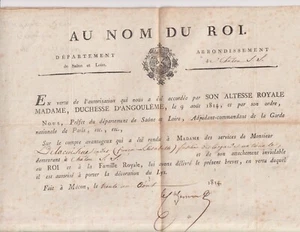 AU NOM DU ROI.
DÉPARTEMENT
de Saône et Loire.
ARRONDISSEMENT
EN vertu de l'autorisation qui nous a été accordée par SON ALTESSE ROYALE
MADAME, DUCHESSE D'ANGOULÊME, le 9 août 1814, et par son ordre,
NOUS, Préfet du département de Saône et Loire, Adjudant-commandant de la Garde
nationale de Paris, etc., etc.,
Sur le compte avantageux qui a été rendu à MADAME des services de Monsieur
demeurant à et de son attachement inviolable
au ROI et à la Famille Royale, lui avons délivré le présent brevet, en vertu duquel
il est autorisé à porter la décoration du Lys.
Fait à Mâcon, le 1814